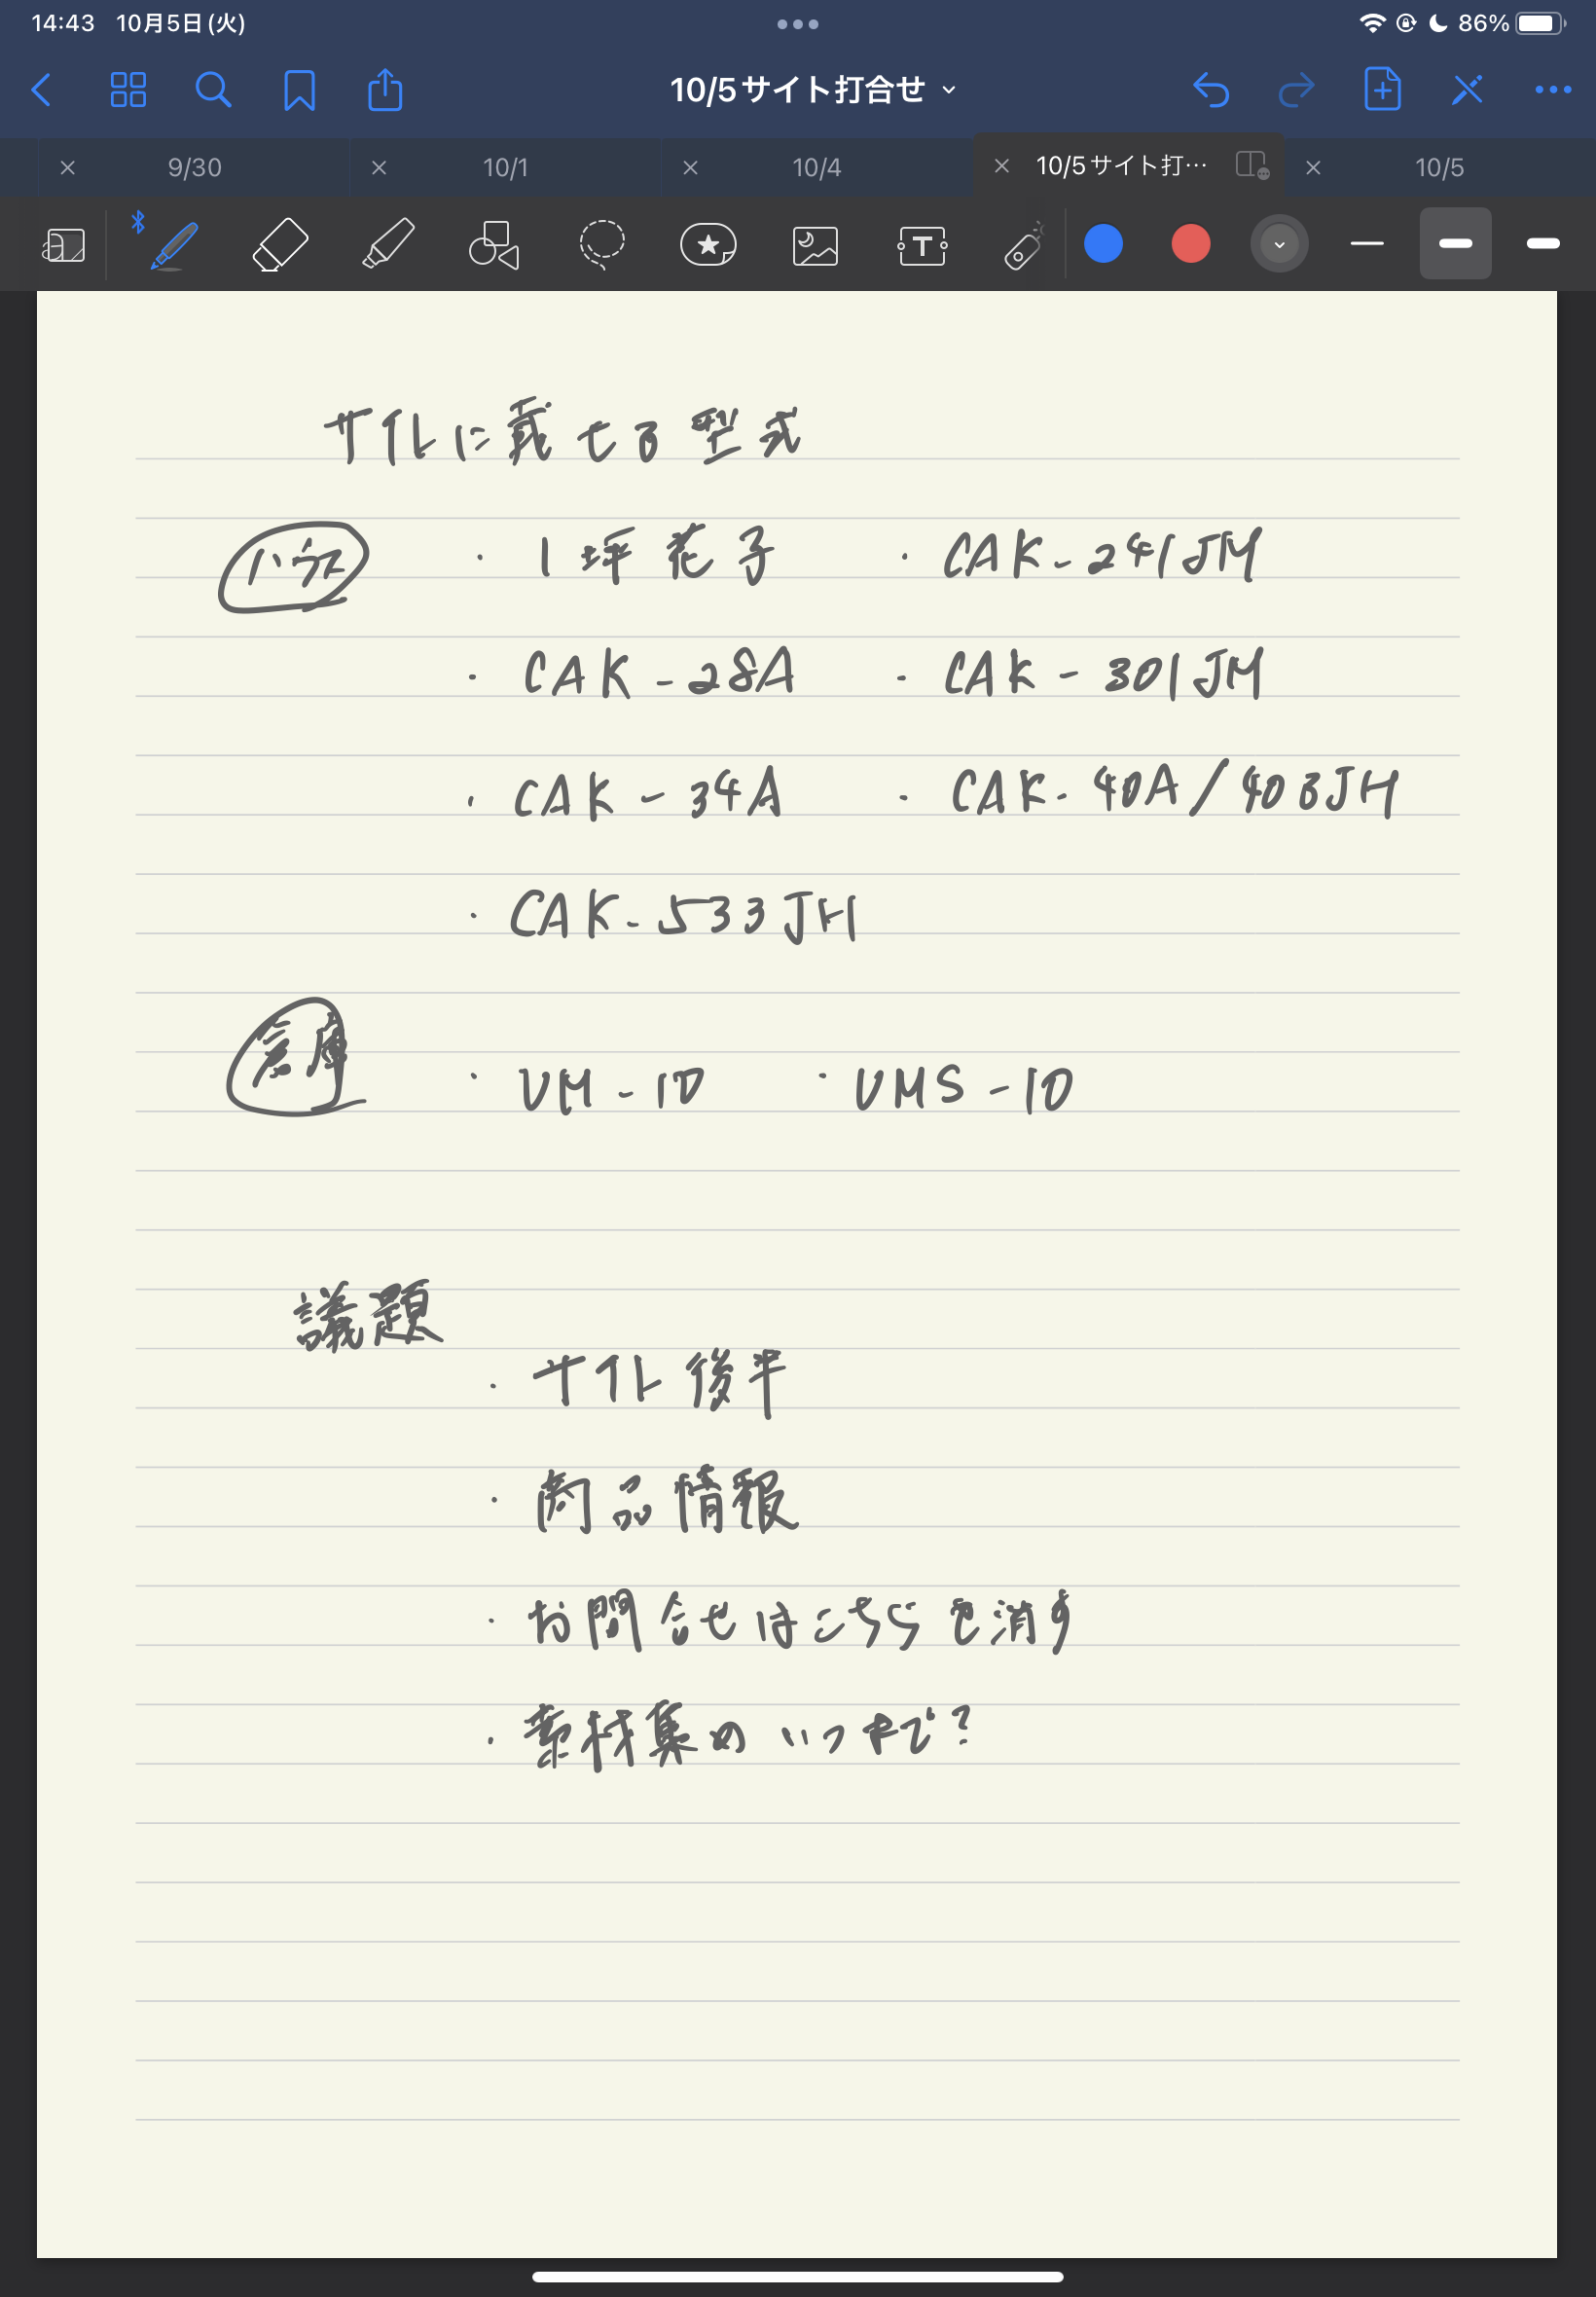 14:43 10月5日(火) 86%
10/5サイト打合せ
9/30 10/1 10/4 10/5サイト打… 10/5
サイトに載せる型式
ハウス ・1坪花子 ・CAK-241JM
・CAK-28A ・CAK-301JM
・CAK-34A ・CAK-40A/403JH
・CAK-533JH
倉庫 ・VM-10 ・VMS-10
議題
・サイト後半
・商品情報
・お問合せはこちらを消す
・素材集め いつまで?